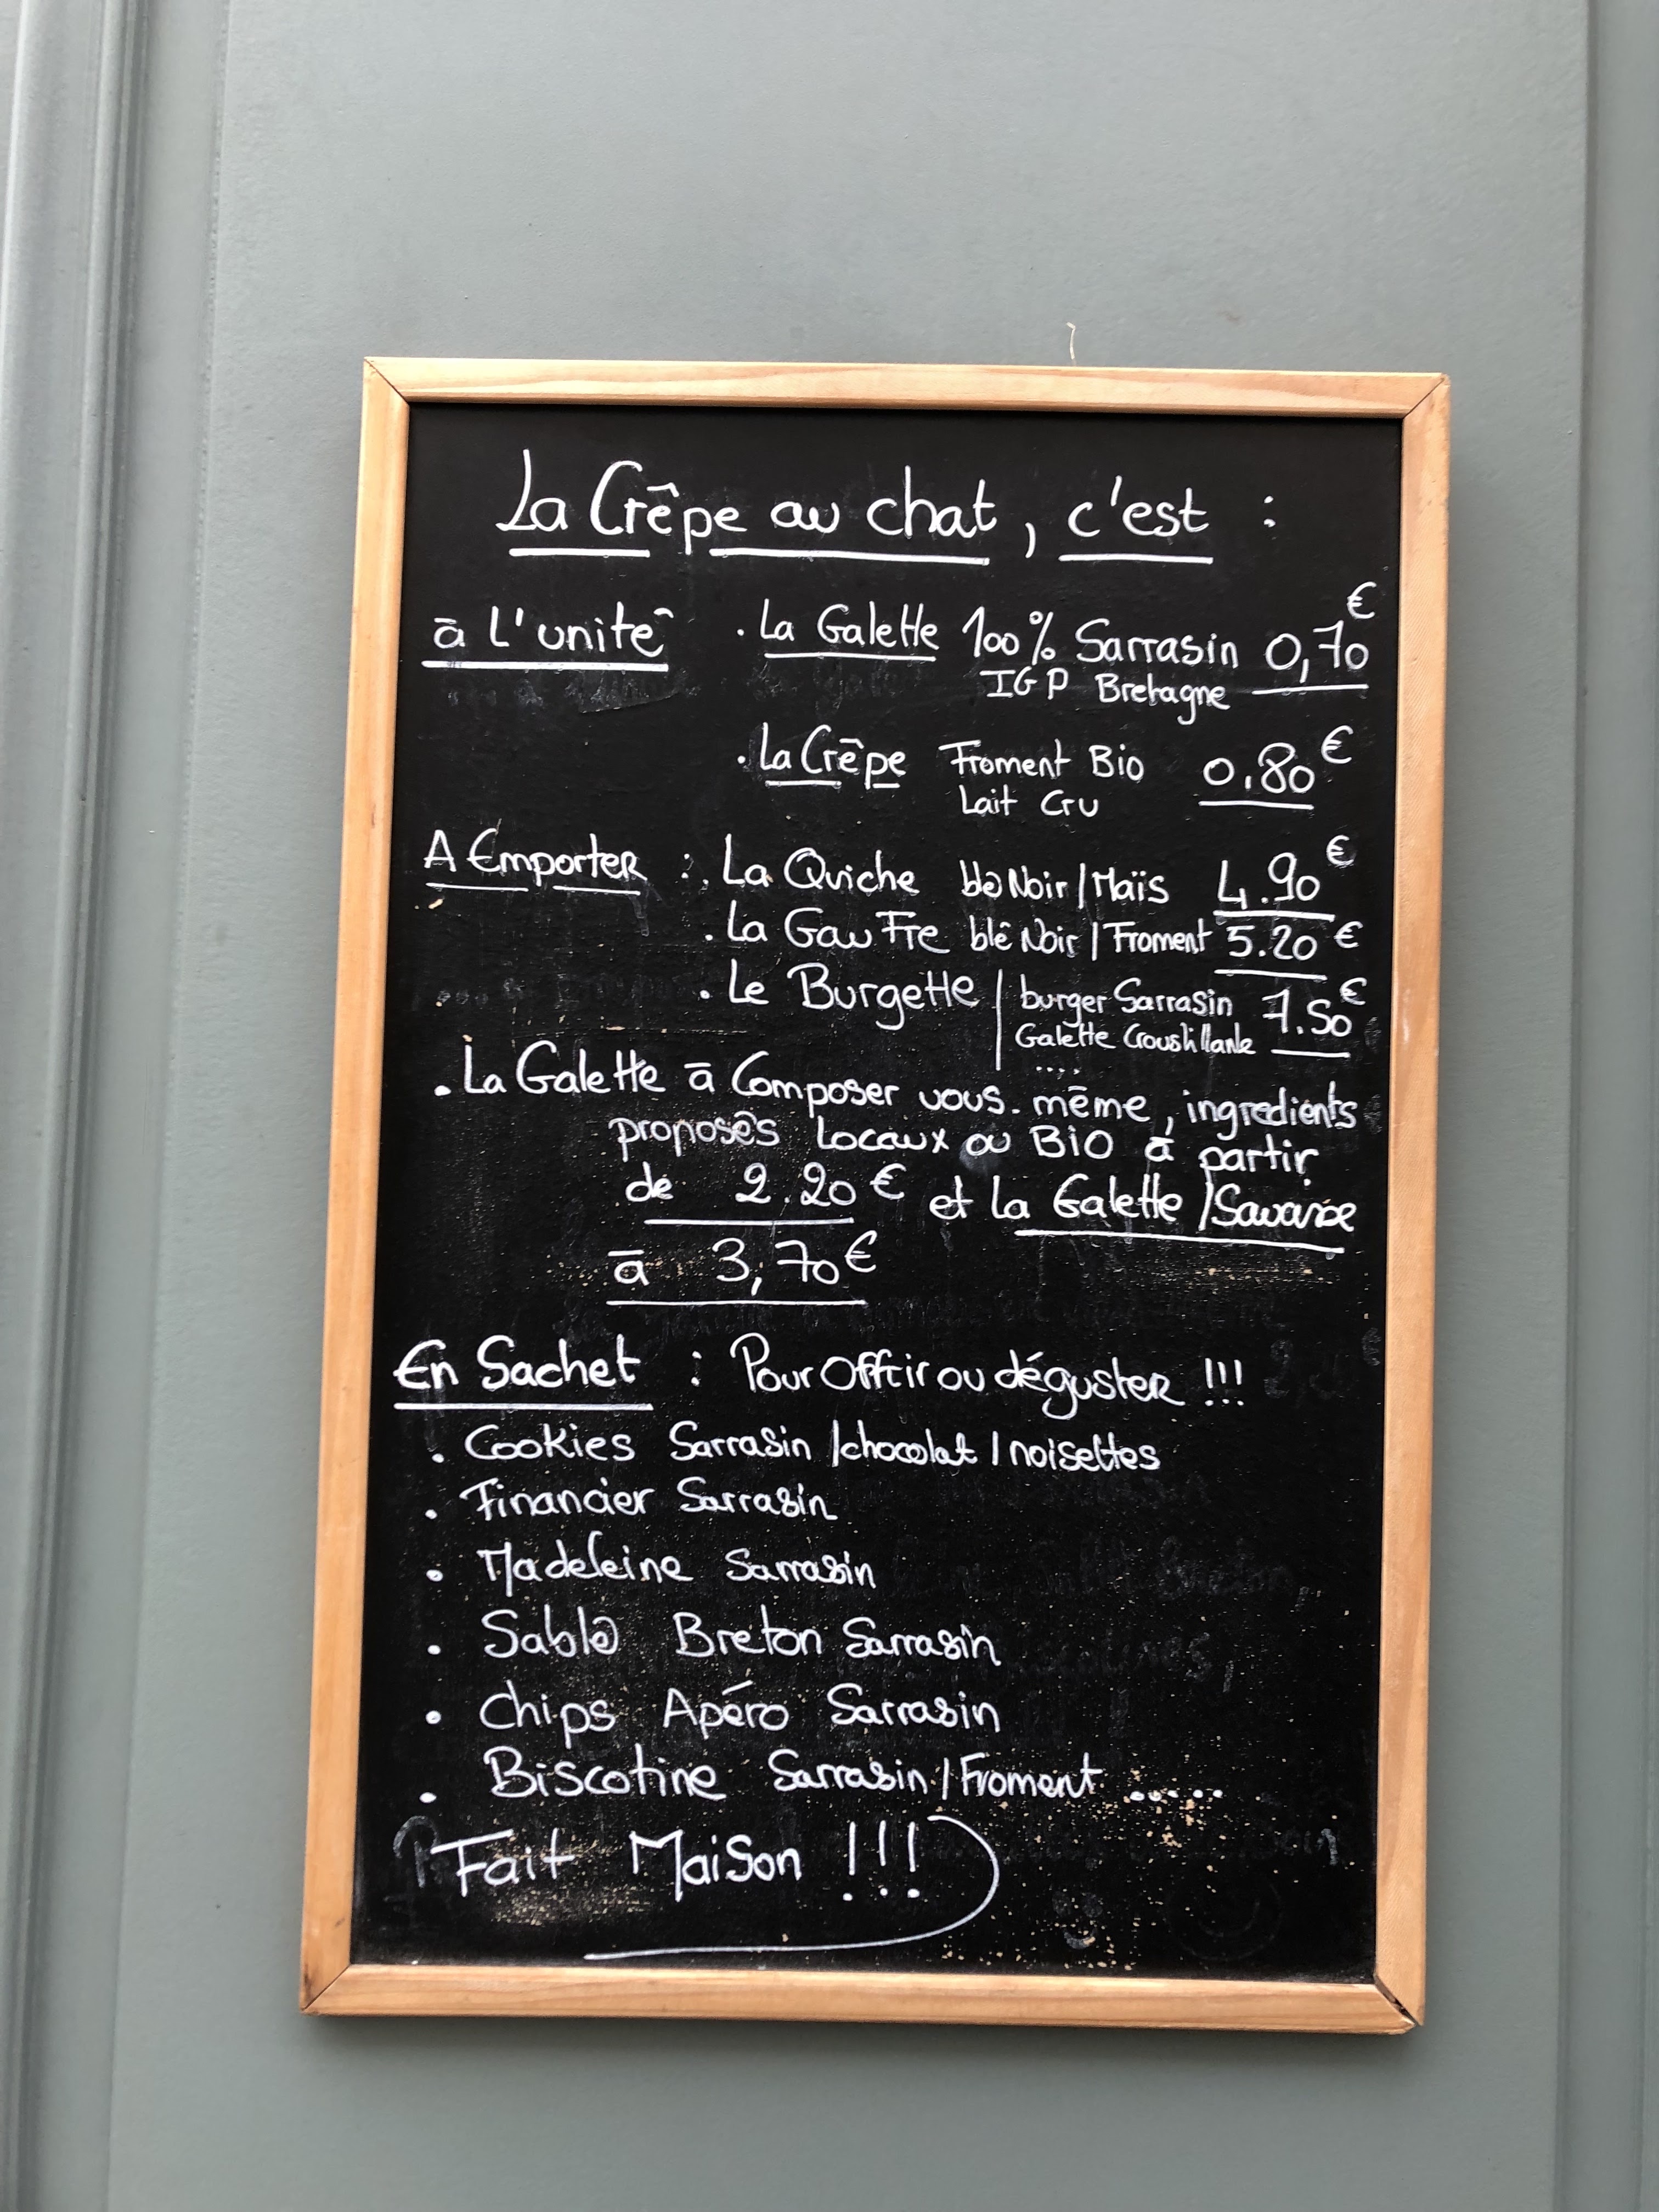 La Crêpe au chat, c'est :
à L'unité . La Galette 100% Sarrasin 0,70 €
IGP Bretagne
. La Crêpe Froment Bio 0.80 €
Lait Cru
A Emporter : . La Quiche blé Noir / Maïs 4.90 €
. La Gaufre blé Noir / Froment 5.20 €
. Le Burgette / burger Sarrasin 7.50 €
Galette Croustillante
....
. La Galette à Composer vous. même, ingredients
proposés Locaux ou BIO à partir
de 2.20 € et la Galette / Saucisse
à 3,70 €
En Sachet : Pour Offrir ou déguster !!!
. Cookies Sarrasin / chocolat / noisettes
. Financier Sarrasin
. Madeleine Sarrasin
. Sablé Breton Sarrasin
. Chips Apéro Sarrasin
. Biscotine Sarrasin / Froment ......
Fait Maison !!!